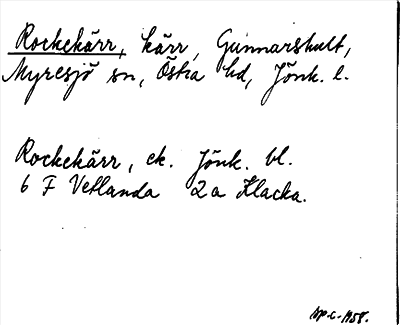 Rockekärr, kärr, Gunnarshult,
Myresjö sn, Östra hd, Jönk. l.
Rockekärr, ek. Jönk. bl.
6 F Vetlanda 2a Klacka.